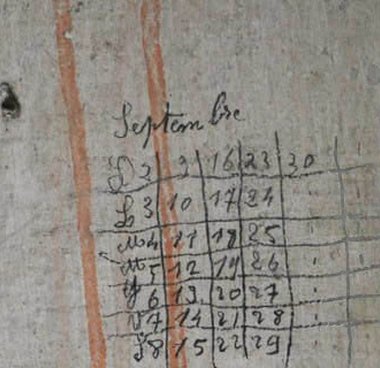 Septembre
D 2 9 16 23 30
L 3 10 17 24
M 4 11 18 25
M 5 12 19 26
J 6 13 20 27
V 7 14 21 28
S 8 15 22 29